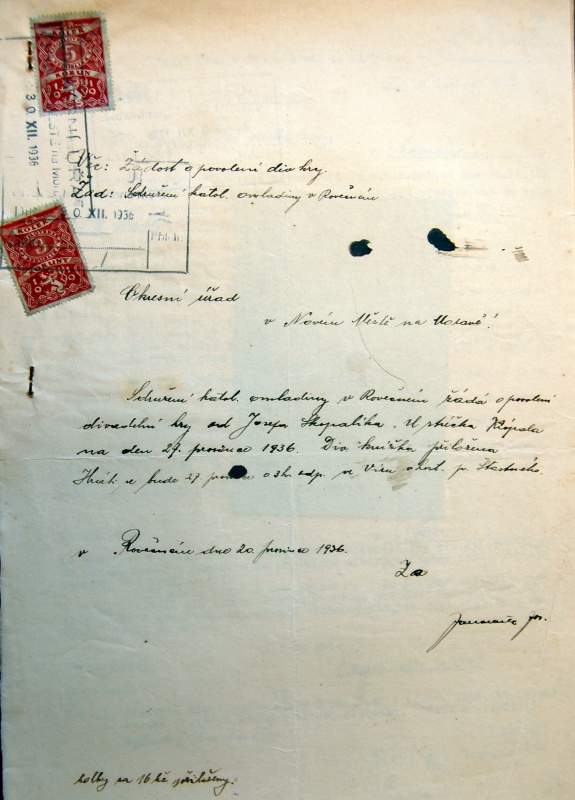 KOLEK
5
KORUN
1919
30. XII. 1936
Věc: Žádost o povolení div hry.
Žad: Sdružení katol. omladiny v Rovečném
0. XII. 1936
KOLEK
3
KORUNY
1919
Příloh
Okresní úřad
v Novém Městě na Moravě!
Sdružení katol. omladiny v Rovečném žádá o povolení
divadelní hry od Josefa Skopalíka. U strýčka
na den 27. prosince 1936. Div knížka přiložena
Hráti se bude 27 o 3h. odp. ve Víru v host. p. Šťastného.
v Rovečném dne 20 prosince 1936.
Za
kolky za 16 kč přiloženy.